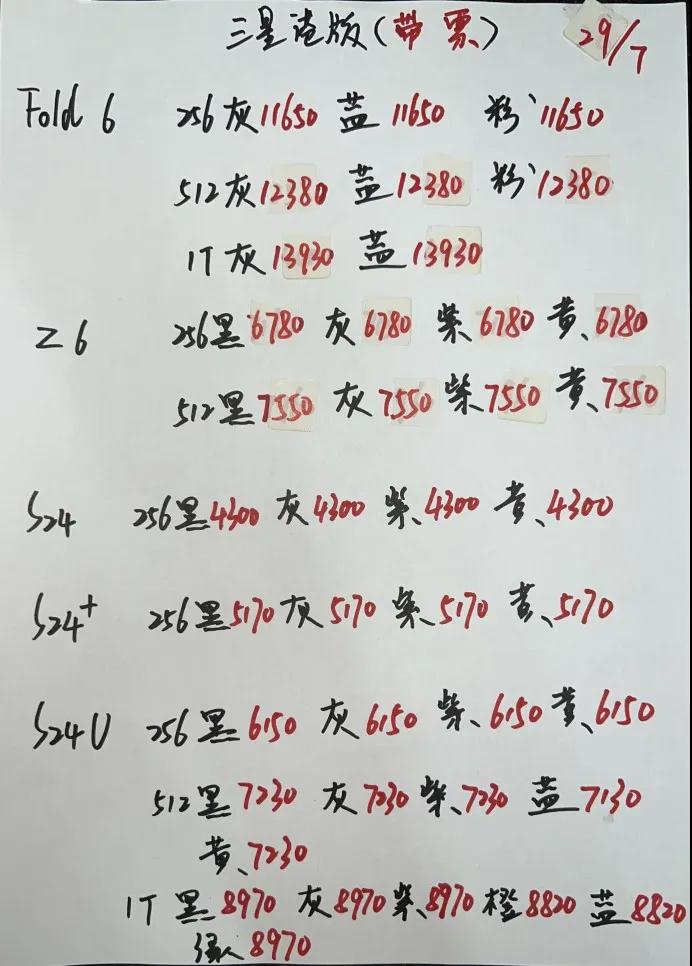 三星港版(带票) 29/7
Fold 6 256 灰 11650 蓝 11650 粉 11650
512 灰 12380 蓝 12380 粉 12380
1T 灰 13930 蓝 13930
Z 6 256 黑 6780 灰 6780 紫 6780 黄 6780
512 黑 7550 灰 7550 紫 7550 黄 7550
S24 256 黑 4300 灰 4300 紫 4300 黄 4300
S24+ 256 黑 5170 灰 5170 紫 5170 黄 5170
S24U 256 黑 6150 灰 6150 紫 6150 黄 6150
512 黑 7230 灰 7230 紫 7230 蓝 7130
黄 7230
1T 黑 8970 灰 8970 紫 8970 橙 8820 蓝 8820
绿 8970